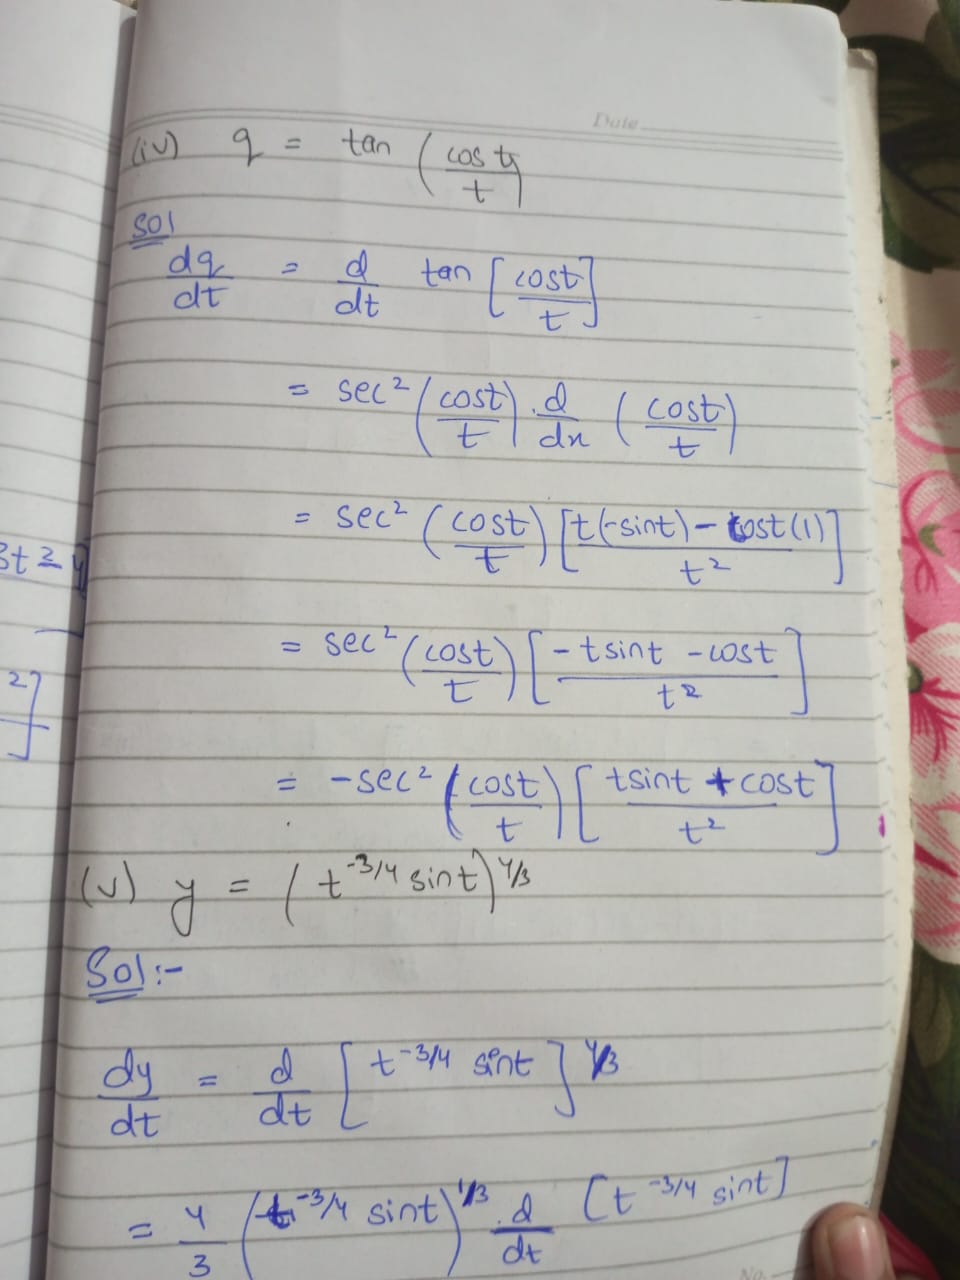 Date
(iv) q = tan (cos t/t)
Sol
dq/dt = d/dt tan [cost/t]
= sec² (cost/t) . d/dx (cost/t)
= sec² (cost/t) [t(-sint) - cost(1)/t²]
= sec² (cost/t) [-tsint - cost/t²]
= -sec² (cost/t) [tsint + cost/t²]
(v) y = (t^-3/4 sint)^4/3
Sol:-
dy/dt = d/dt [t^-3/4 sint]^4/3
= 4/3 (t^-3/4 sint)^1/3 . d/dt [t^-3/4 sint]
No.
3t²
2]